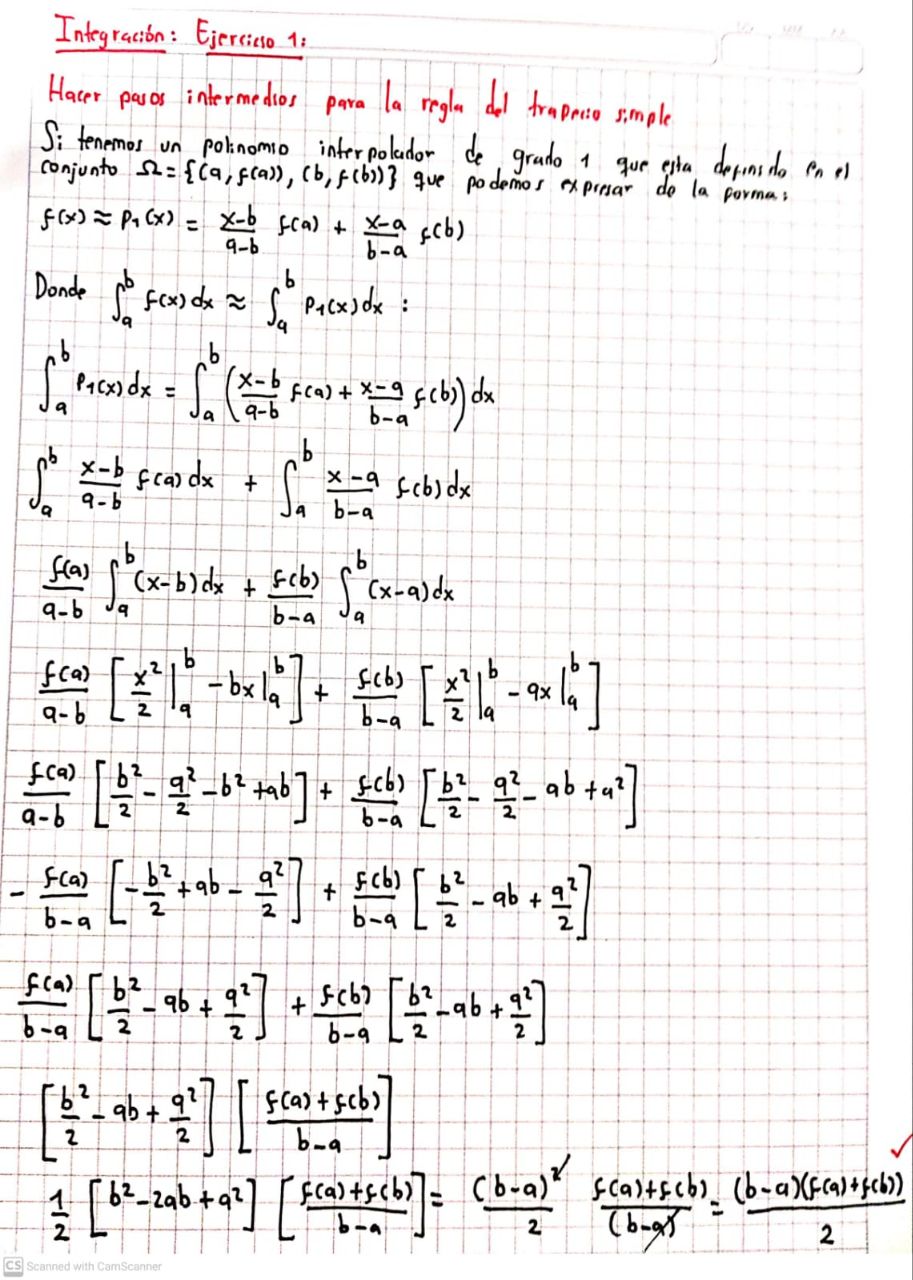 Integración: Ejercicio 1:
Hacer pasos intermedios para la regla del trapecio simple
Si tenemos un polinomio interpolador de grado 1 que esta definido en el
conjunto Ω = {(a, f(a)), (b, f(b))} que podemos expresar de la forma:
f(x) ≈ P₁(x) = \frac{x-b}{a-b} f(a) + \frac{x-a}{b-a} f(b)
Donde ∫_a^b f(x) dx ≈ ∫_a^b P₁(x) dx :
∫_a^b P₁(x) dx = ∫_a^b (\frac{x-b}{a-b} f(a) + \frac{x-a}{b-a} f(b)) dx
∫_a^b \frac{x-b}{a-b} f(a) dx + ∫_a^b \frac{x-a}{b-a} f(b) dx
\frac{f(a)}{a-b} ∫_a^b (x-b) dx + \frac{f(b)}{b-a} ∫_a^b (x-a) dx
\frac{f(a)}{a-b} [\frac{x²}{2}|_a^b - bx|_a^b] + \frac{f(b)}{b-a} [\frac{x²}{2}|_a^b - ax|_a^b]
\frac{f(a)}{a-b} [\frac{b²}{2} - \frac{a²}{2} - b² + ab] + \frac{f(b)}{b-a} [\frac{b²}{2} - \frac{a²}{2} - ab + a²]
- \frac{f(a)}{b-a} [-\frac{b²}{2} + ab - \frac{a²}{2}] + \frac{f(b)}{b-a} [\frac{b²}{2} - ab + \frac{a²}{2}]
\frac{f(a)}{b-a} [\frac{b²}{2} - ab + \frac{a²}{2}] + \frac{f(b)}{b-a} [\frac{b²}{2} - ab + \frac{a²}{2}]
[\frac{b²}{2} - ab + \frac{a²}{2}] [\frac{f(a)+f(b)}{b-a}]
\frac{1}{2} [b² - 2ab + a²] [\frac{f(a)+f(b)}{b-a}] = \frac{(b-a)²}{2} \frac{f(a)+f(b)}{(b-a)} = \frac{(b-a)(f(a)+f(b))}{2} ✓
CS Scanned with CamScanner